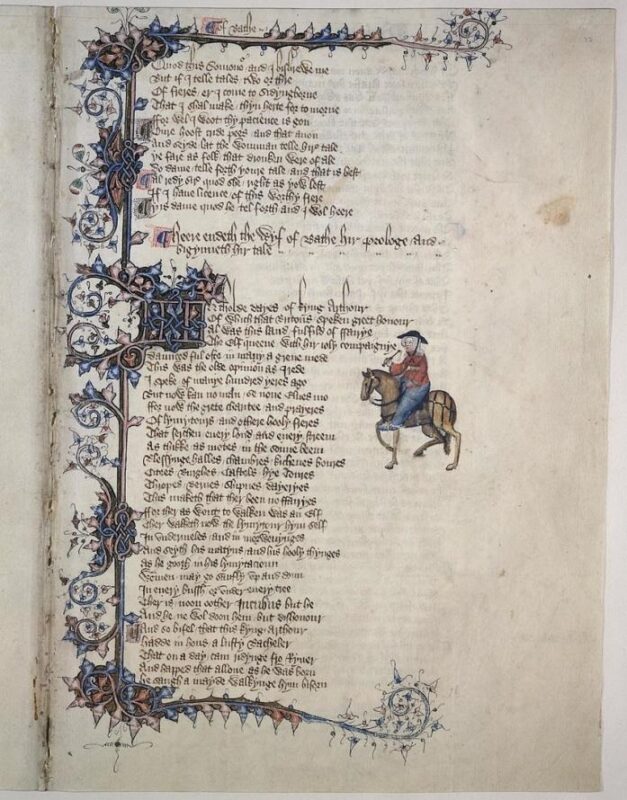 of Bathe
Quod this Somono and I bishrewe me
But if I telle tales two or thre
Of freres er I come to Sidyngborne
That I shal make thyn herte for to morne
ffor wel I woot thy pacience is gon
Oure hoost cride pees and that anon
And seyde lat the womman telle hir tale
ye fare as folk that dronken were of ale
Do dame telle forth youre tale and that is best
Al redy sir quod she right as yow lest
If I haue licence of this worthy frere
yis dame quod he tel forth and I wol heere
Heere endeth the Wyf of Bathe hir prologe and
bigynneth hir tale
In tholde dayes of kyng Arthour
Of which that Britons speken greet honour
Al was this land fulfild of ffairye
The Elf queene with hir ioly compaignye
Daunced ful ofte in many a grene mede
This was the olde opinion as I rede
I speke of manye hundred yeres ago
But now kan no man se none Elues mo
ffor now the grete charitee and prayeres
Of lymytours and othere hooly freres
That serchen euery lond and euery streem
As thikke as motes in the sonne beem
Blessynge halles chambres kichenes boures
Citees Burghes Castels hye Toures
Thropes Bernes Shipnes dayeryes
This maketh that ther been no ffairyes
ffor ther as wont to walken was an Elf
Ther walketh now the lymytour hym self
In vndermeles and in morwenynges
And seyth his matyns and his hooly thynges
As he gooth in his lymytacioun
Wommen may go saufly vp and doun
In euery bussh or vnder euery tree
Ther is noon oother Incubus but he
And he ne wol doon hem but dishonour
And so bifel that this kyng Arthour
hadde in hous a lusty Bacheler
That on a day cam ridynge fro Ryuer
And happed that allone as he was born
he saugh a mayde walkynge hym biforn